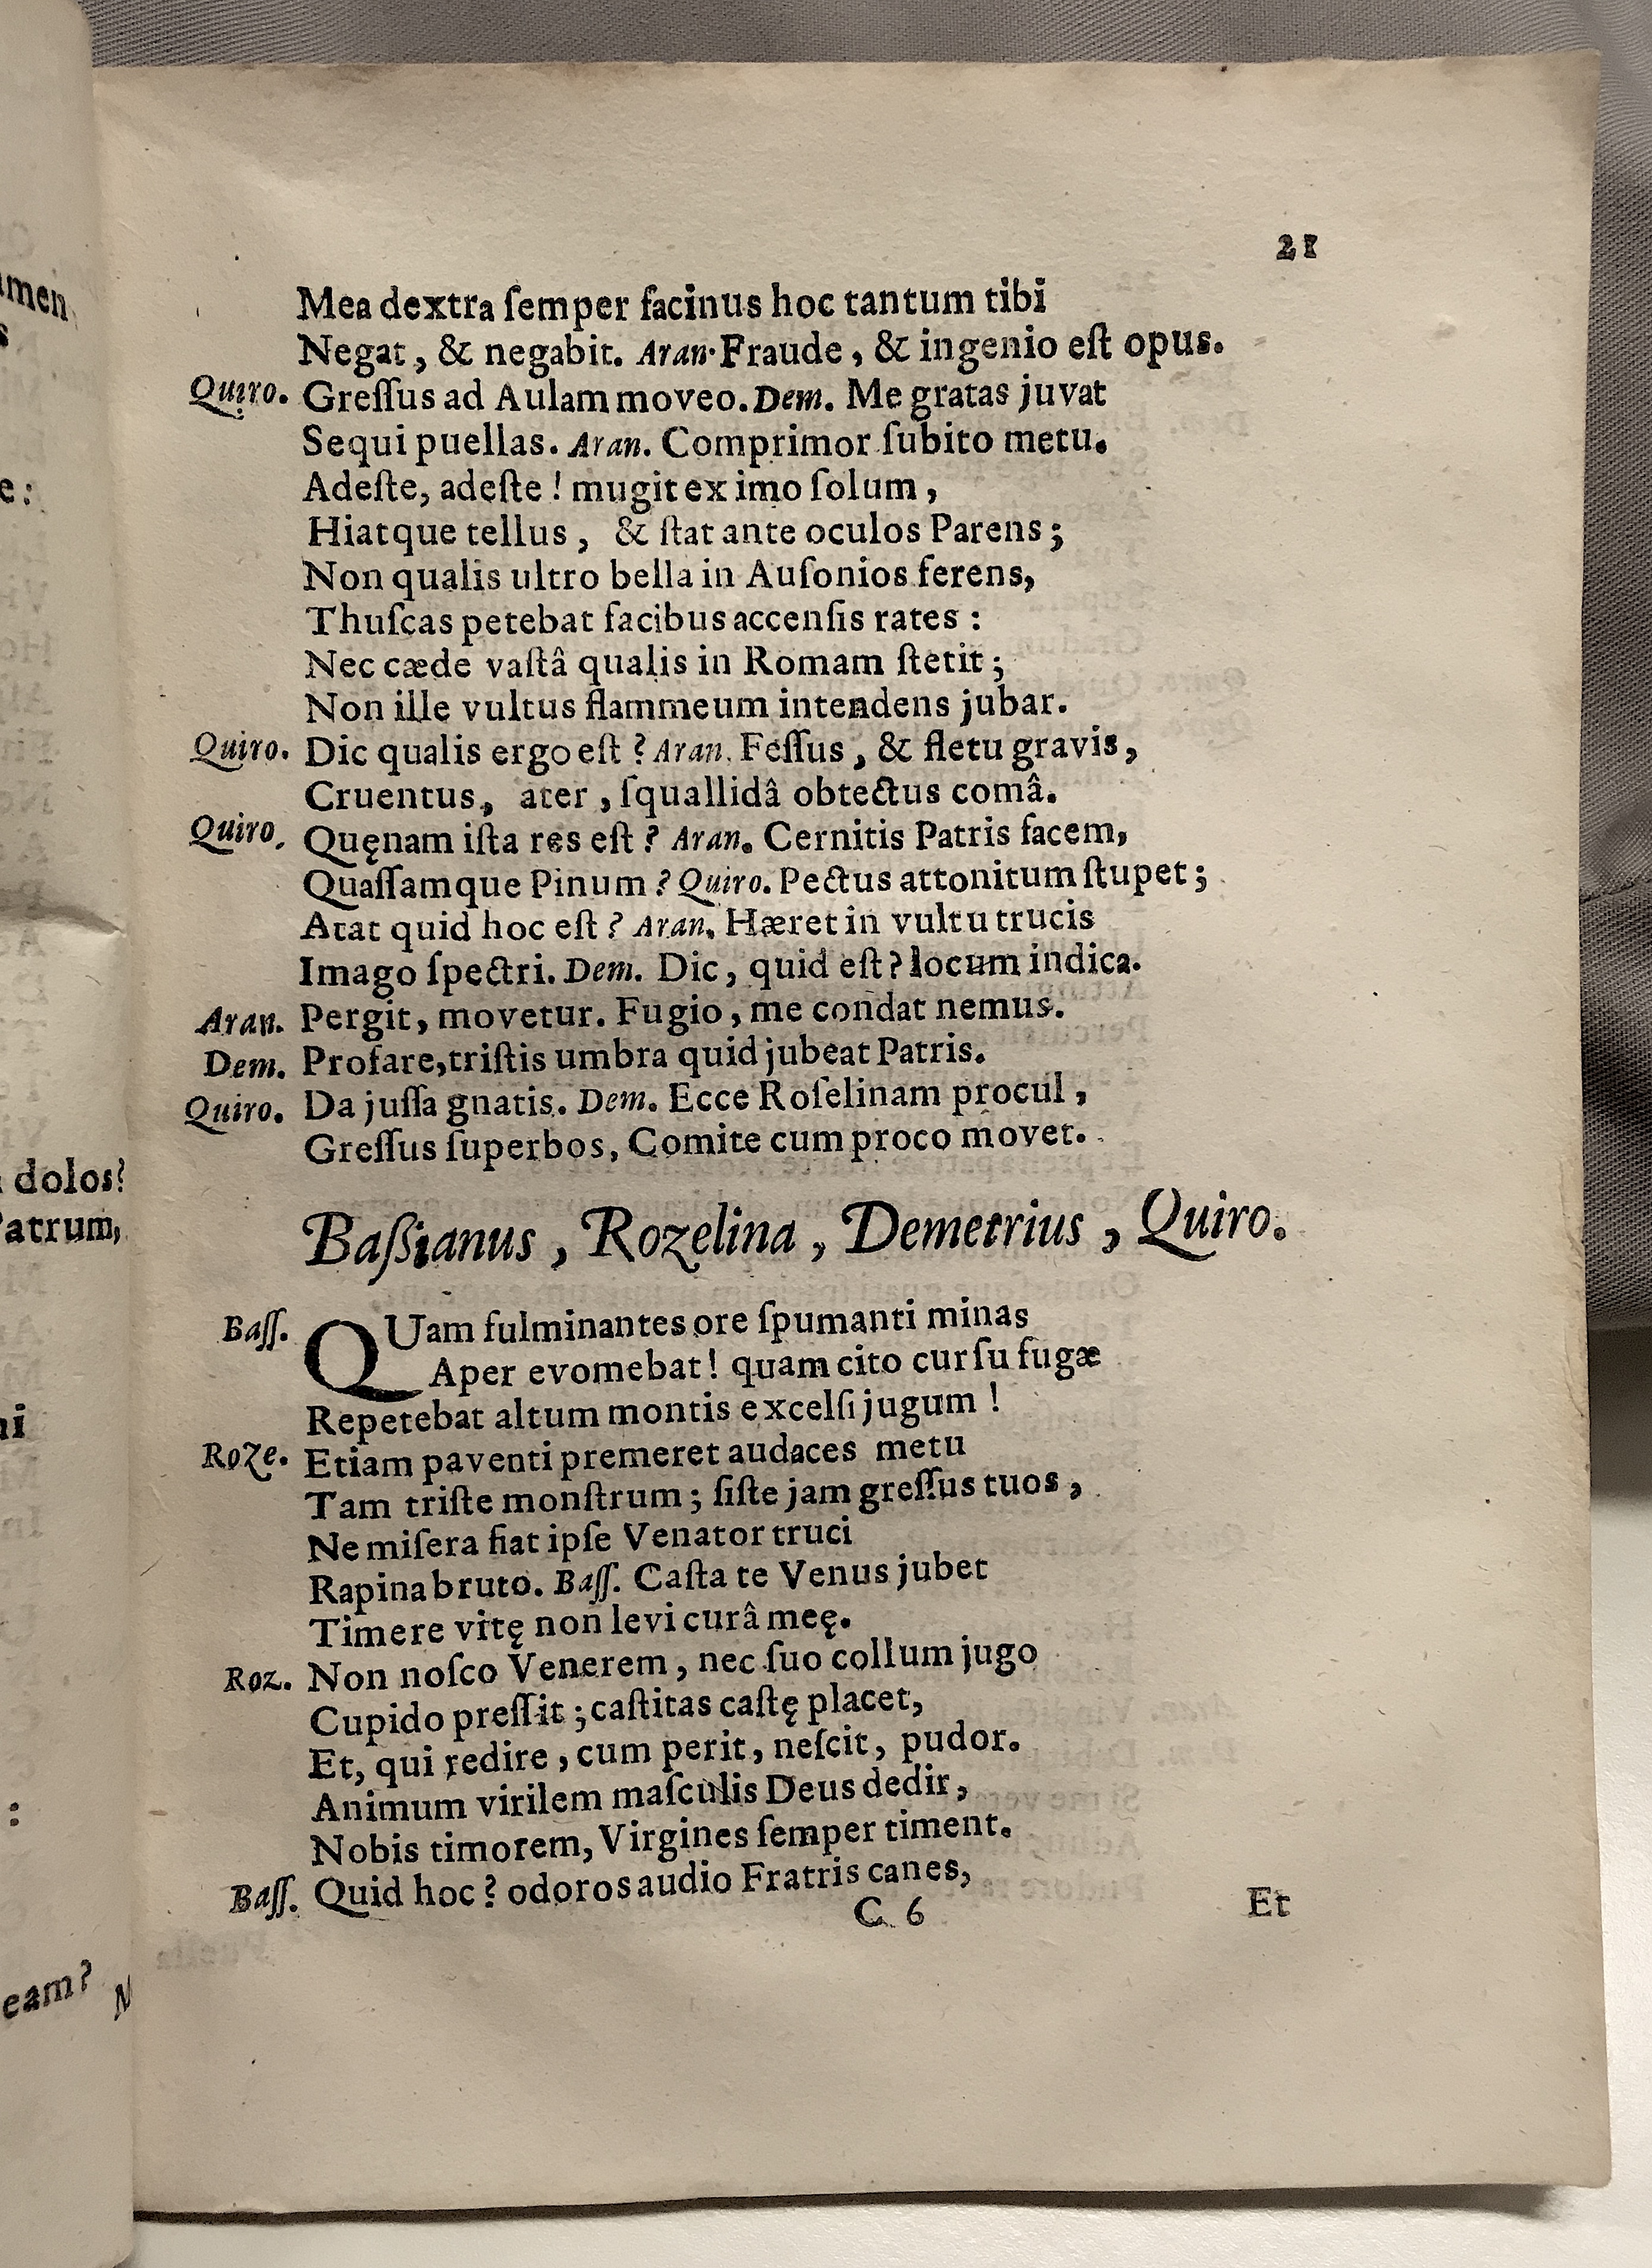 21
Mea dextra ſemper facinus hoc tantum tibi
Negat, & negabit. Aran. Fraude, & ingenio eſt opus.
Quiro. Greſſus ad Aulam moveo. Dem. Me gratas juvat
Sequi puellas. Aran. Comprimor ſubito metu.
Adeſte, adeſte! mugit ex imo ſolum,
Hiatque tellus, & ſtat ante oculos Parens;
Non qualis ultro bella in Auſonios ferens,
Thuſcas petebat facibus accenſis rates:
Nec cæde vaſtâ qualis in Romam ſtetit;
Non ille vultus flammeum intendens jubar.
Quiro. Dic qualis ergo eſt? Aran. Feſſus, & fletu gravis,
Cruentus, ater, ſquallidâ obtectus comâ.
Quiro. Quęnam iſta res eſt? Aran. Cernitis Patris facem,
Quaſſamque Pinum? Quiro. Pectus attonitum ſtupet;
Atat quid hoc eſt? Aran. Hæret in vultu trucis
Imago ſpectri. Dem. Dic, quid eſt? locum indica.
Aran. Pergit, movetur. Fugio, me condat nemus.
Dem. Profare, triſtis umbra quid jubeat Patris.
Quiro. Da juſſa gnatis. Dem. Ecce Roſelinam procul,
Greſſus ſuperbos, Comite cum proco movet.
Baßianus, Rozelina, Demetrius, Quiro.
Baſſ. QUam fulminantes ore ſpumanti minas
Aper evomebat! quam cito curſu fugæ
Repetebat altum montis excelſi jugum!
Roze. Etiam paventi premeret audaces metu
Tam triſte monſtrum; ſiſte jam greſſus tuos,
Ne miſera fiat ipſe Venator truci
Rapina bruto. Baſſ. Caſta te Venus jubet
Timere vitę non levi curâ meę.
Roz. Non noſco Venerem, nec ſuo collum jugo
Cupido preſſit; caſtitas caſtę placet,
Et, qui redire, cum perit, neſcit, pudor.
Animum virilem maſculis Deus dedir,
Nobis timorem, Virgines ſemper timent.
Baſſ. Quid hoc? odoros audio Fratris canes,
C 6 Et
amen
s
e:
dolos?
Patrum,
ni
:
eam?